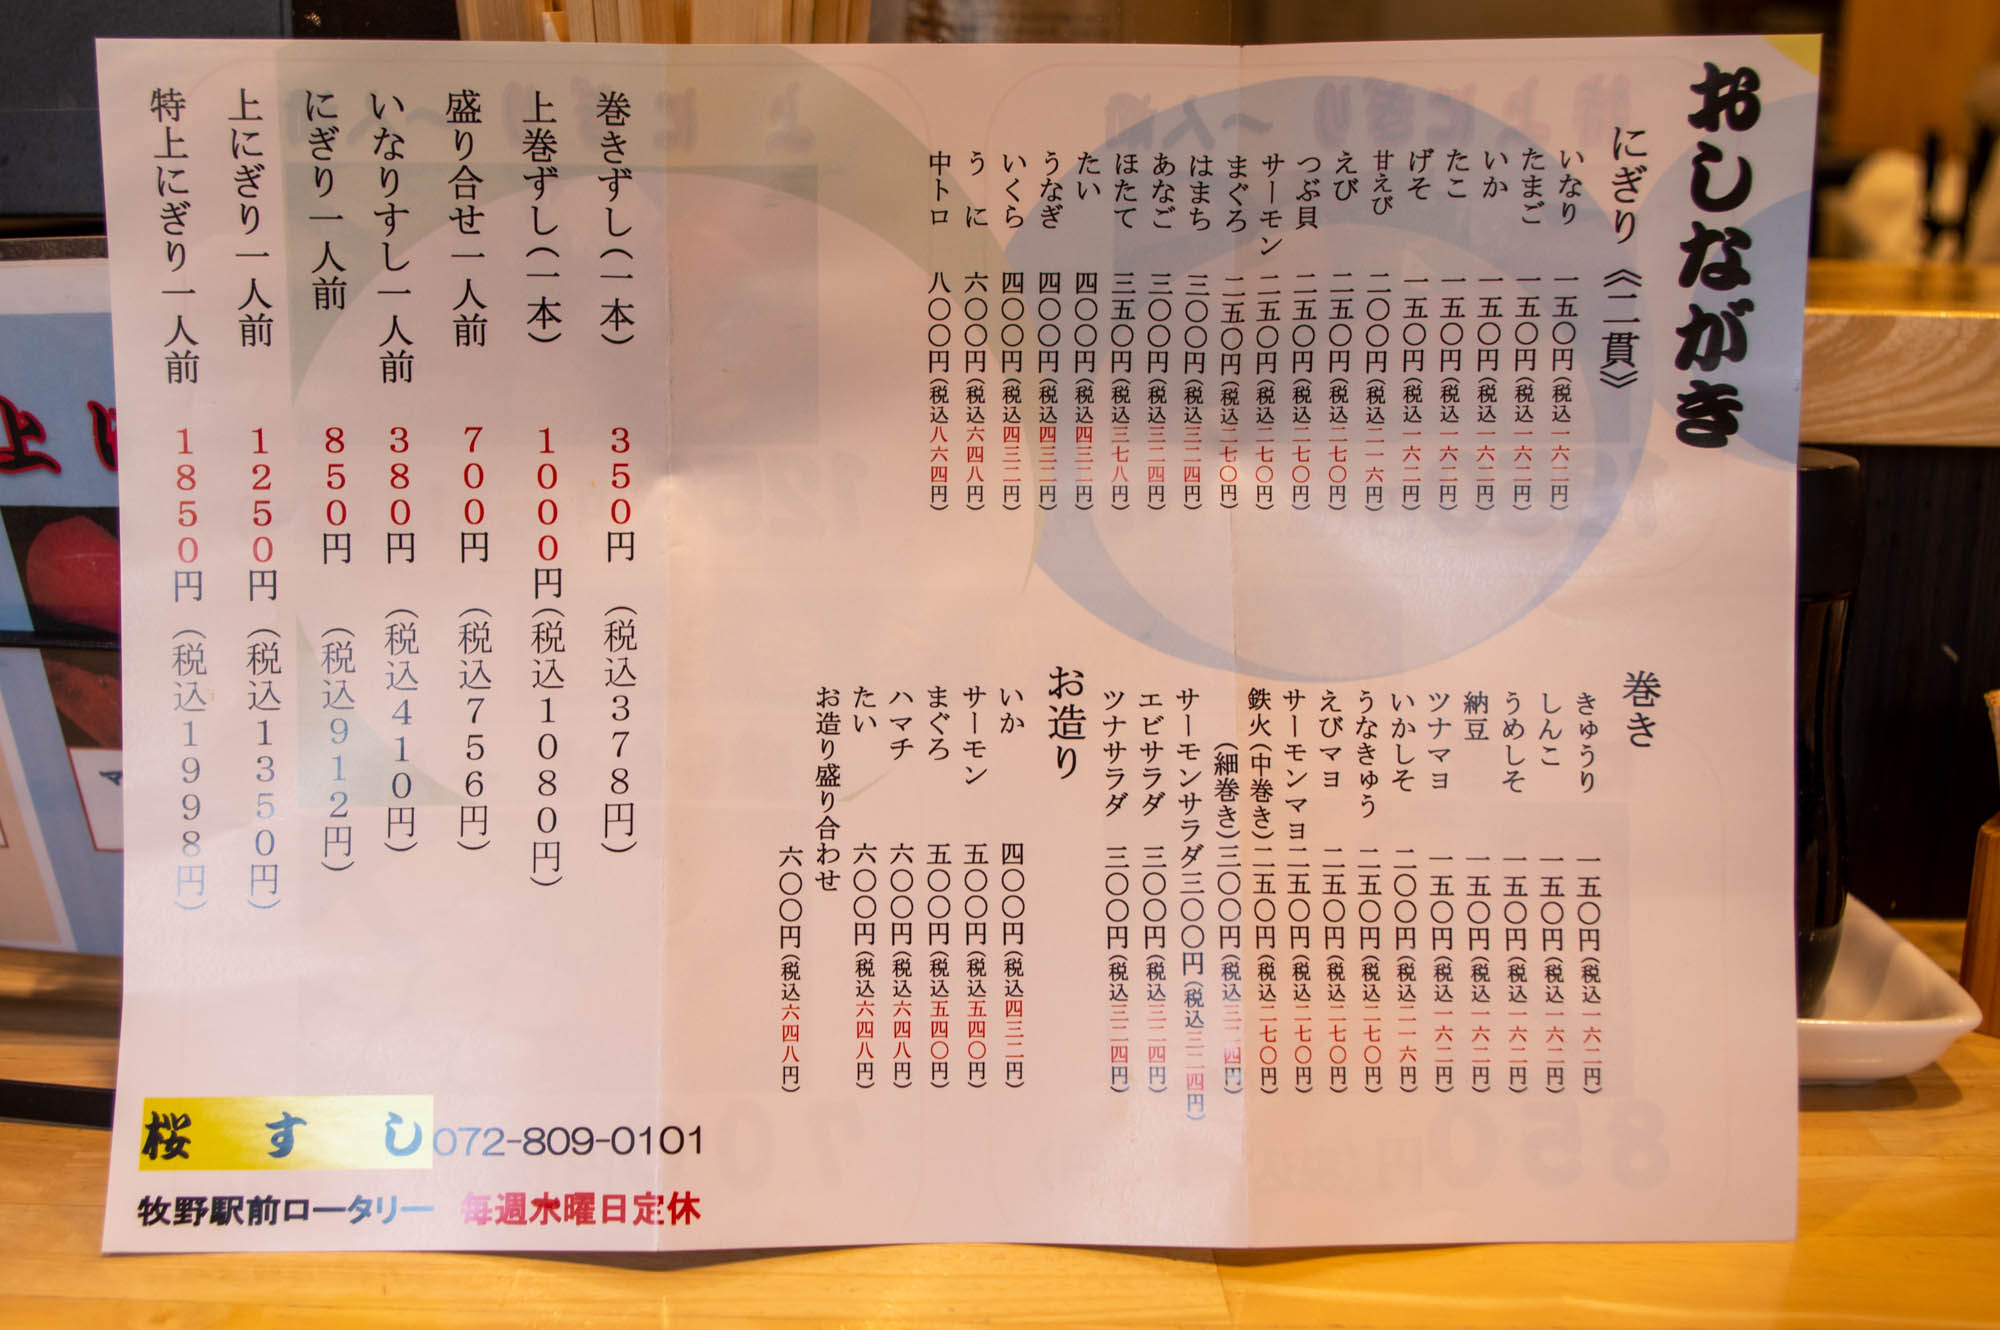 おしながき
にぎり《二貫》
いなり 一五〇円(税込一六二円)
たまご 一五〇円(税込一六二円)
いか 一五〇円(税込一六二円)
たこ 一五〇円(税込一六二円)
げそ 一五〇円(税込一六二円)
甘えび 二〇〇円(税込二一六円)
えび 二五〇円(税込二七〇円)
つぶ貝 二五〇円(税込二七〇円)
サーモン 二五〇円(税込二七〇円)
まぐろ 二五〇円(税込二七〇円)
はまち 三〇〇円(税込三二四円)
あなご 三〇〇円(税込三二四円)
ほたて 三五〇円(税込三七八円)
たい 四〇〇円(税込四三二円)
うなぎ 四〇〇円(税込四三二円)
いくら 四〇〇円(税込四三二円)
うに 六〇〇円(税込六四八円)
中トロ 八〇〇円(税込八六四円)
巻き
きゅうり 一五〇円(税込一六二円)
しんこ 一五〇円(税込一六二円)
うめしそ 一五〇円(税込一六二円)
納豆 一五〇円(税込一六二円)
ツナマヨ 一五〇円(税込一六二円)
いかしそ 二〇〇円(税込二一六円)
うなきゅう 二五〇円(税込二七〇円)
えびマヨ 二五〇円(税込二七〇円)
サーモンマヨ 二五〇円(税込二七〇円)
鉄火(中巻き) 二五〇円(税込二七〇円)
(細巻き) 三〇〇円(税込三二四円)
サーモンサラダ 三〇〇円(税込三二四円)
エビサラダ 三〇〇円(税込三二四円)
ツナサラダ 三〇〇円(税込三二四円)
お造り
いか 四〇〇円(税込四三二円)
サーモン 五〇〇円(税込五四〇円)
まぐろ 五〇〇円(税込五四〇円)
ハマチ 六〇〇円(税込六四八円)
たい 六〇〇円(税込六四八円)
お造り盛り合わせ
六〇〇円(税込六四八円)
巻きずし(一本) 350円(税込378円)
上巻ずし(一本) 1000円(税込1080円)
盛り合せ一人前 700円(税込756円)
いなりすし一人前 380円(税込410円)
にぎり一人前 850円(税込912円)
上にぎり一人前 1250円(税込1350円)
特上にぎり一人前 1850円(税込1998円)
桜すし 072-809-0101
牧野駅前ロータリー 毎週水曜日定休